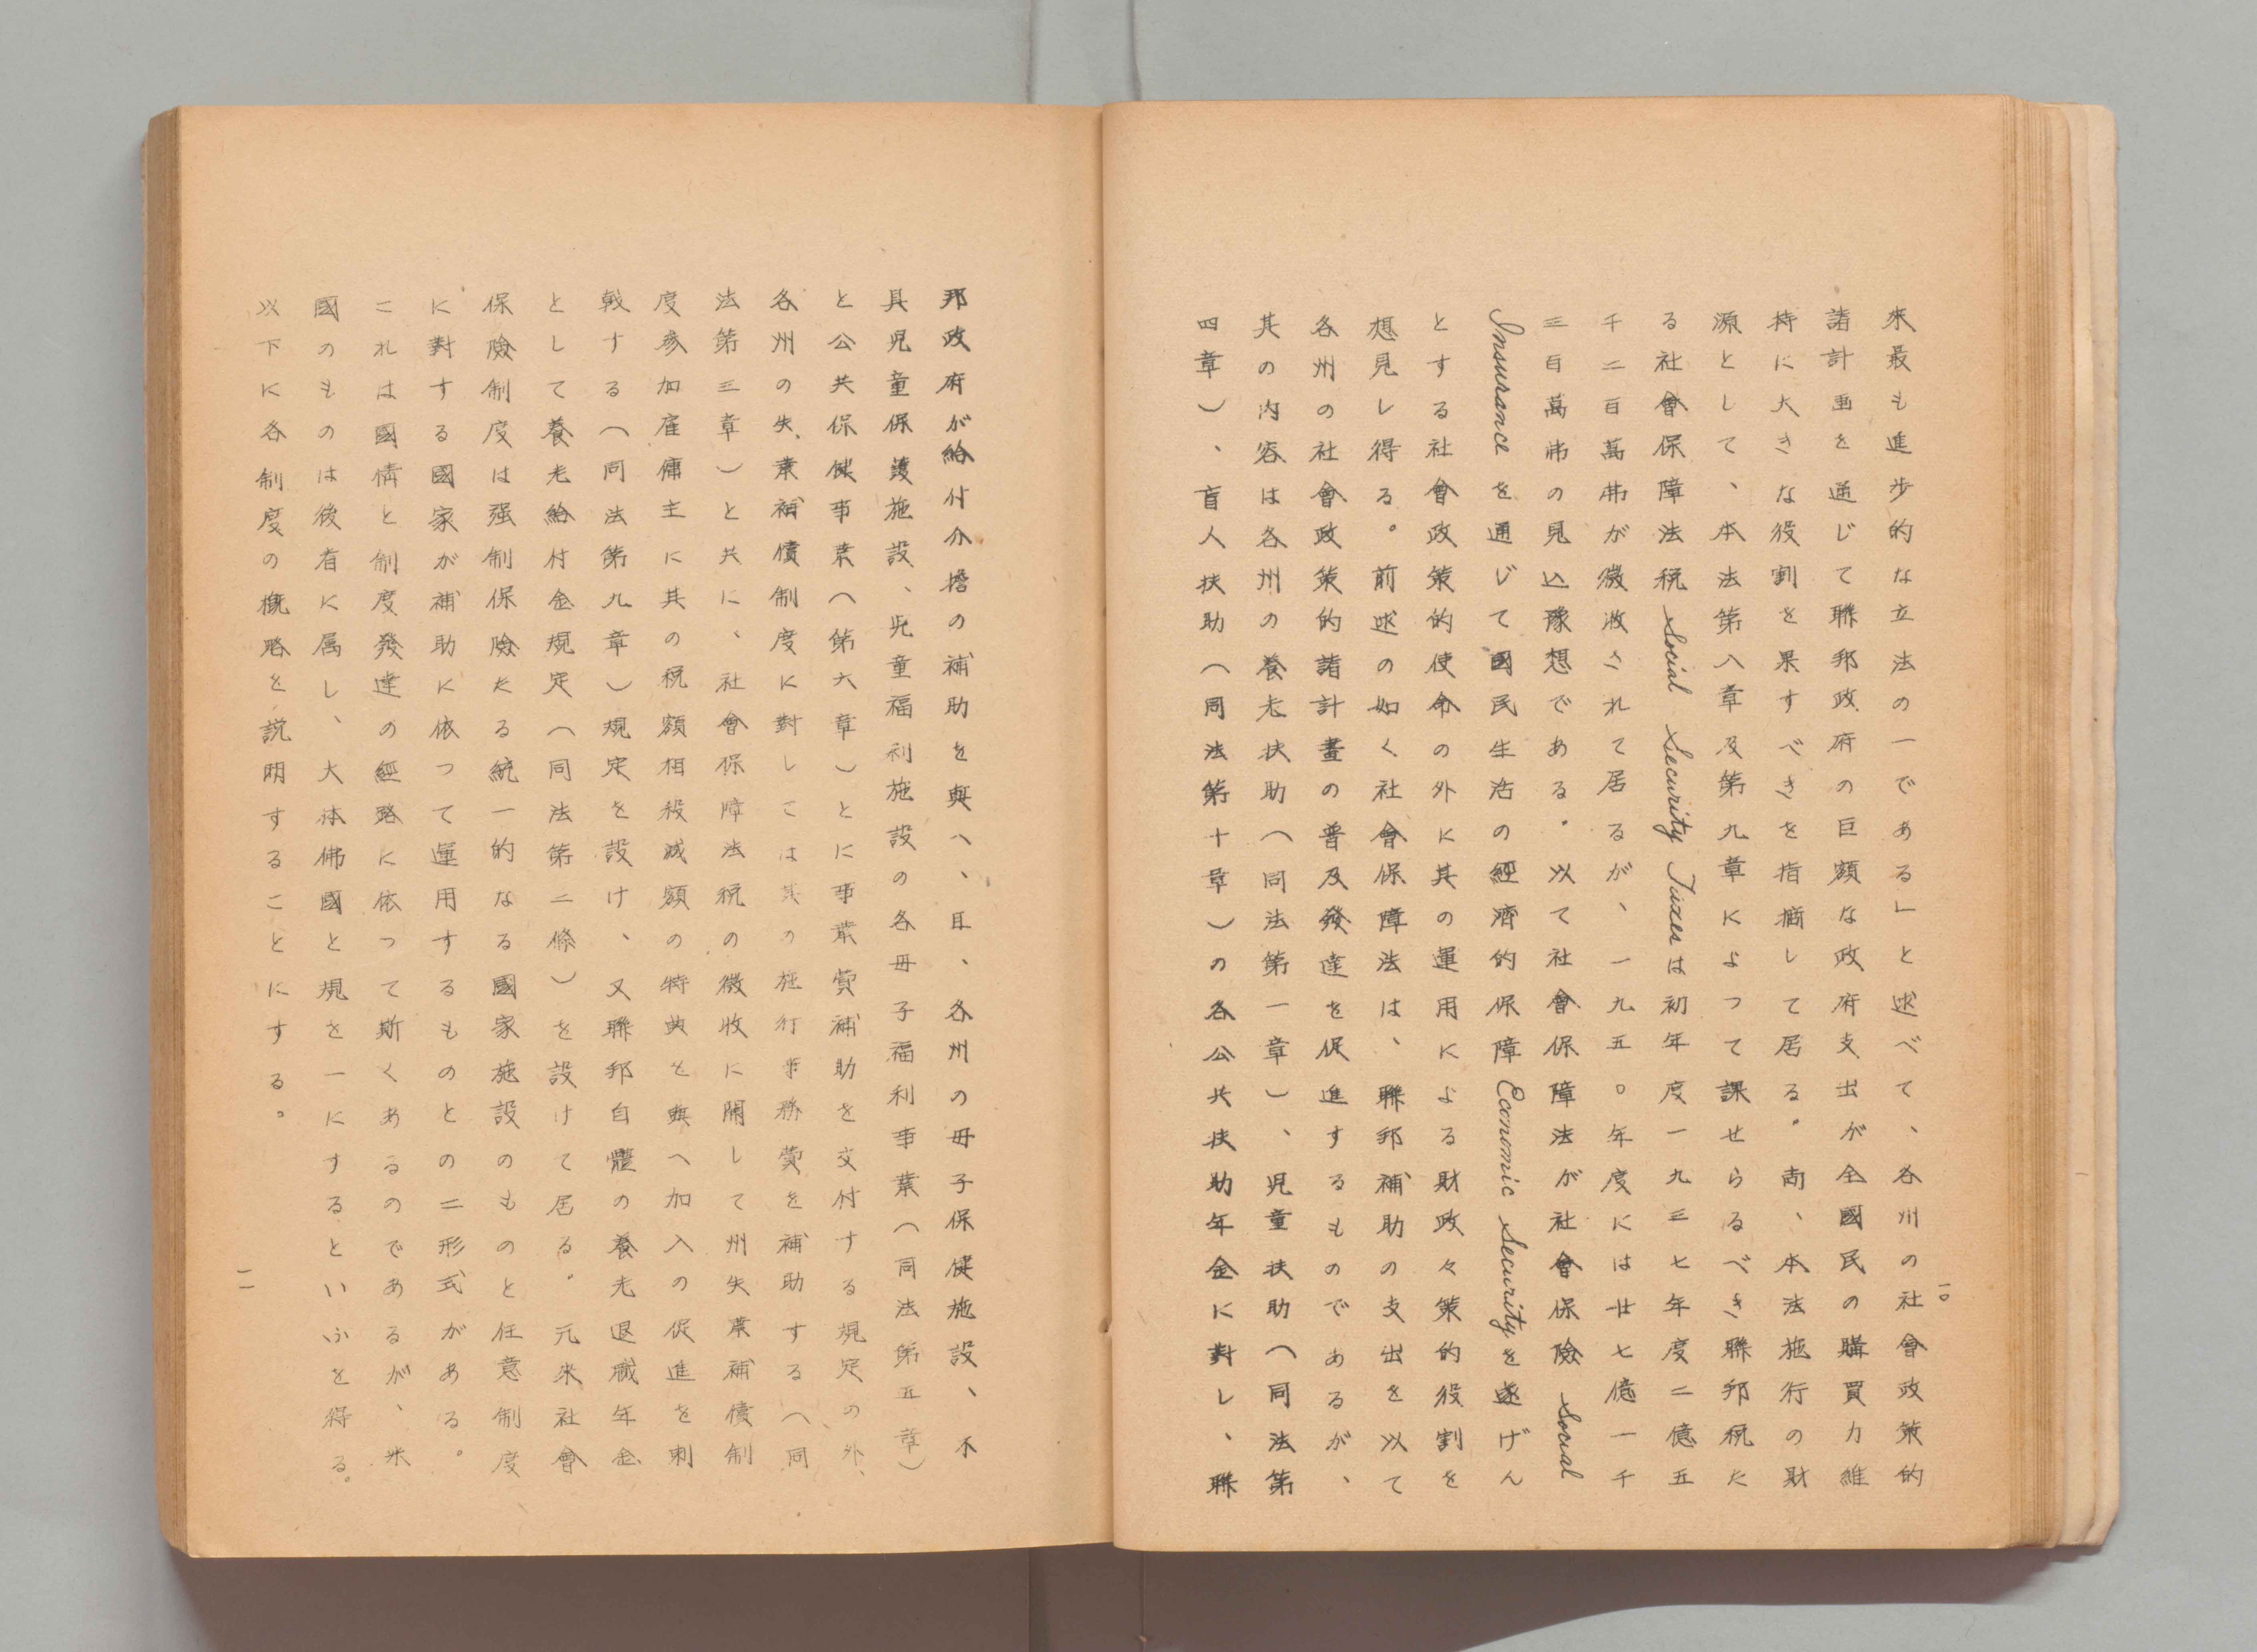 來最も進步的な立法の一である」と述べて、各州の社會政策的
諸計画を通じて聯邦政府の巨額な政府支出が全國民の購買力維
持に大きな役割を果すべきを指摘して居る。尚、本法施行の財
源として、本法第八章及第九章によつて課せらるべき聯邦税た
る社會保障法税 Social Security Taxes は初年度一九三七年度二億五
千二百萬弗が徴收されて居るが、一九五〇年度には廿七億一千
三百萬弗の見込豫想である。以て社會保障法が社會保險 Social
Insurance を通じて國民生活の經濟的保障 Economic Security を遂げん
とする社會政策的使命の外に其の運用による財政々策的役割を
想見し得る。前述の如く社會保障法は、聯邦補助の支出を以て
各州の社會政策的諸計畫の普及發達を促進するものであるが、
其の内容は各州の養老扶助（同法第一章）、児童扶助（同法第
四章）、盲人扶助（同法第十章）の各公共扶助年金に對し、聯
一〇
邦政府が給付分擔の補助を與へ、且、各州の母子保健施設、不
具児童保護施設、児童福利施設の各母子福利事業（同法第五章）
と公共保健事業（第六章）とに事業費補助を交付する規定の外、
各州の失業補償制度に對しては其の施行事務費を補助する（同
法第三章）と共に、社會保障法税の徴收に関して州失業補償制
度参加雇傭主に其の税額相殺減額の特典を與へ加入の促進を刺
戟する（同法第九章）規定を設け、又聯邦自體の養老退職年金
として養老給付金規定（同法第二條）を設けて居る。元来社會
保險制度は强制保險たる統一的なる國家施設のものと任意制度
に對する國家が補助に依つて運用するものとの二形式がある。
これは國情と制度發達の經路に依つて斯くあるのであるが、米
國のものは後者に属し、大体佛國と規を一にするといふを得る。
以下に各制度の概略を説明することにする。
一一